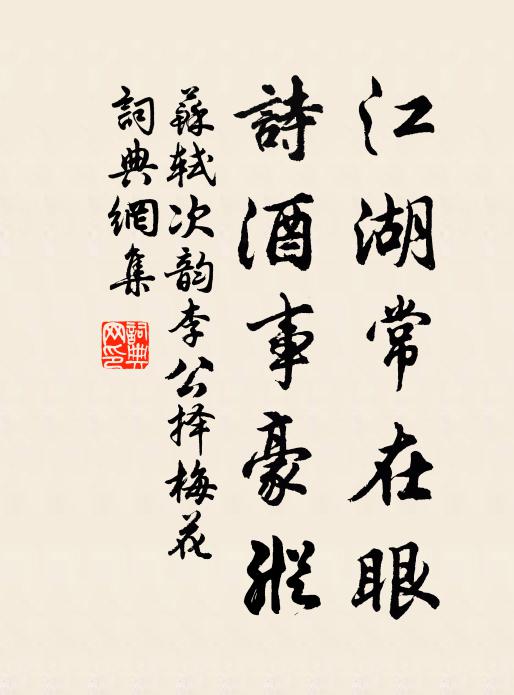 江湖常在眼
詩酒事豪縱
蘇軾次韵李公择梅花
詞典網集
詞典网印